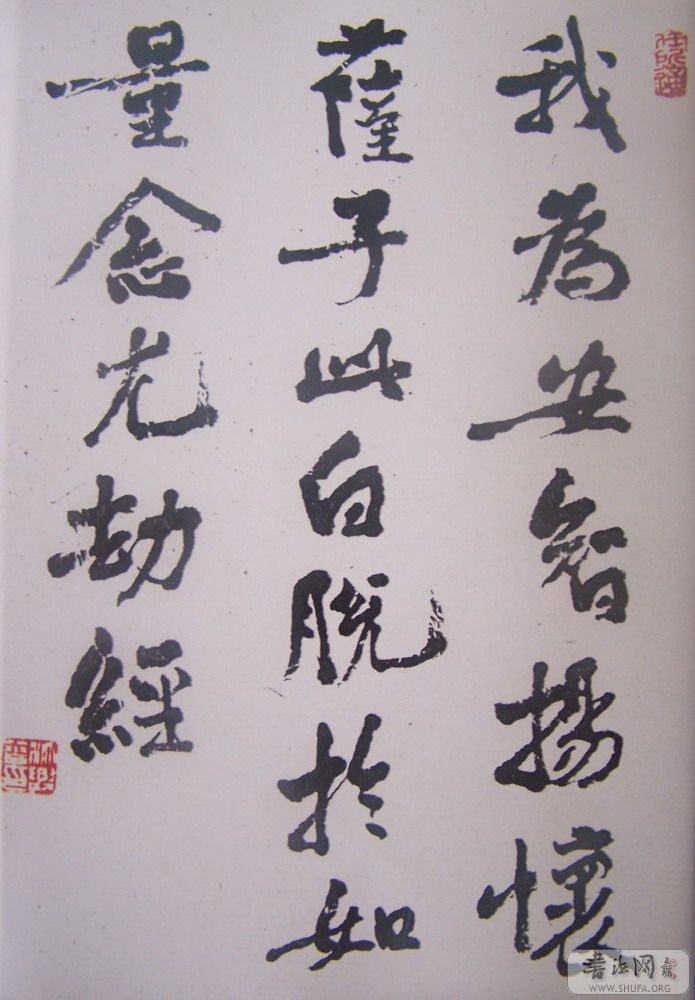 我為安智揚懷
薩子此白脫於如
量念尤劫經
書法网
WWW.SHUFA.ORG